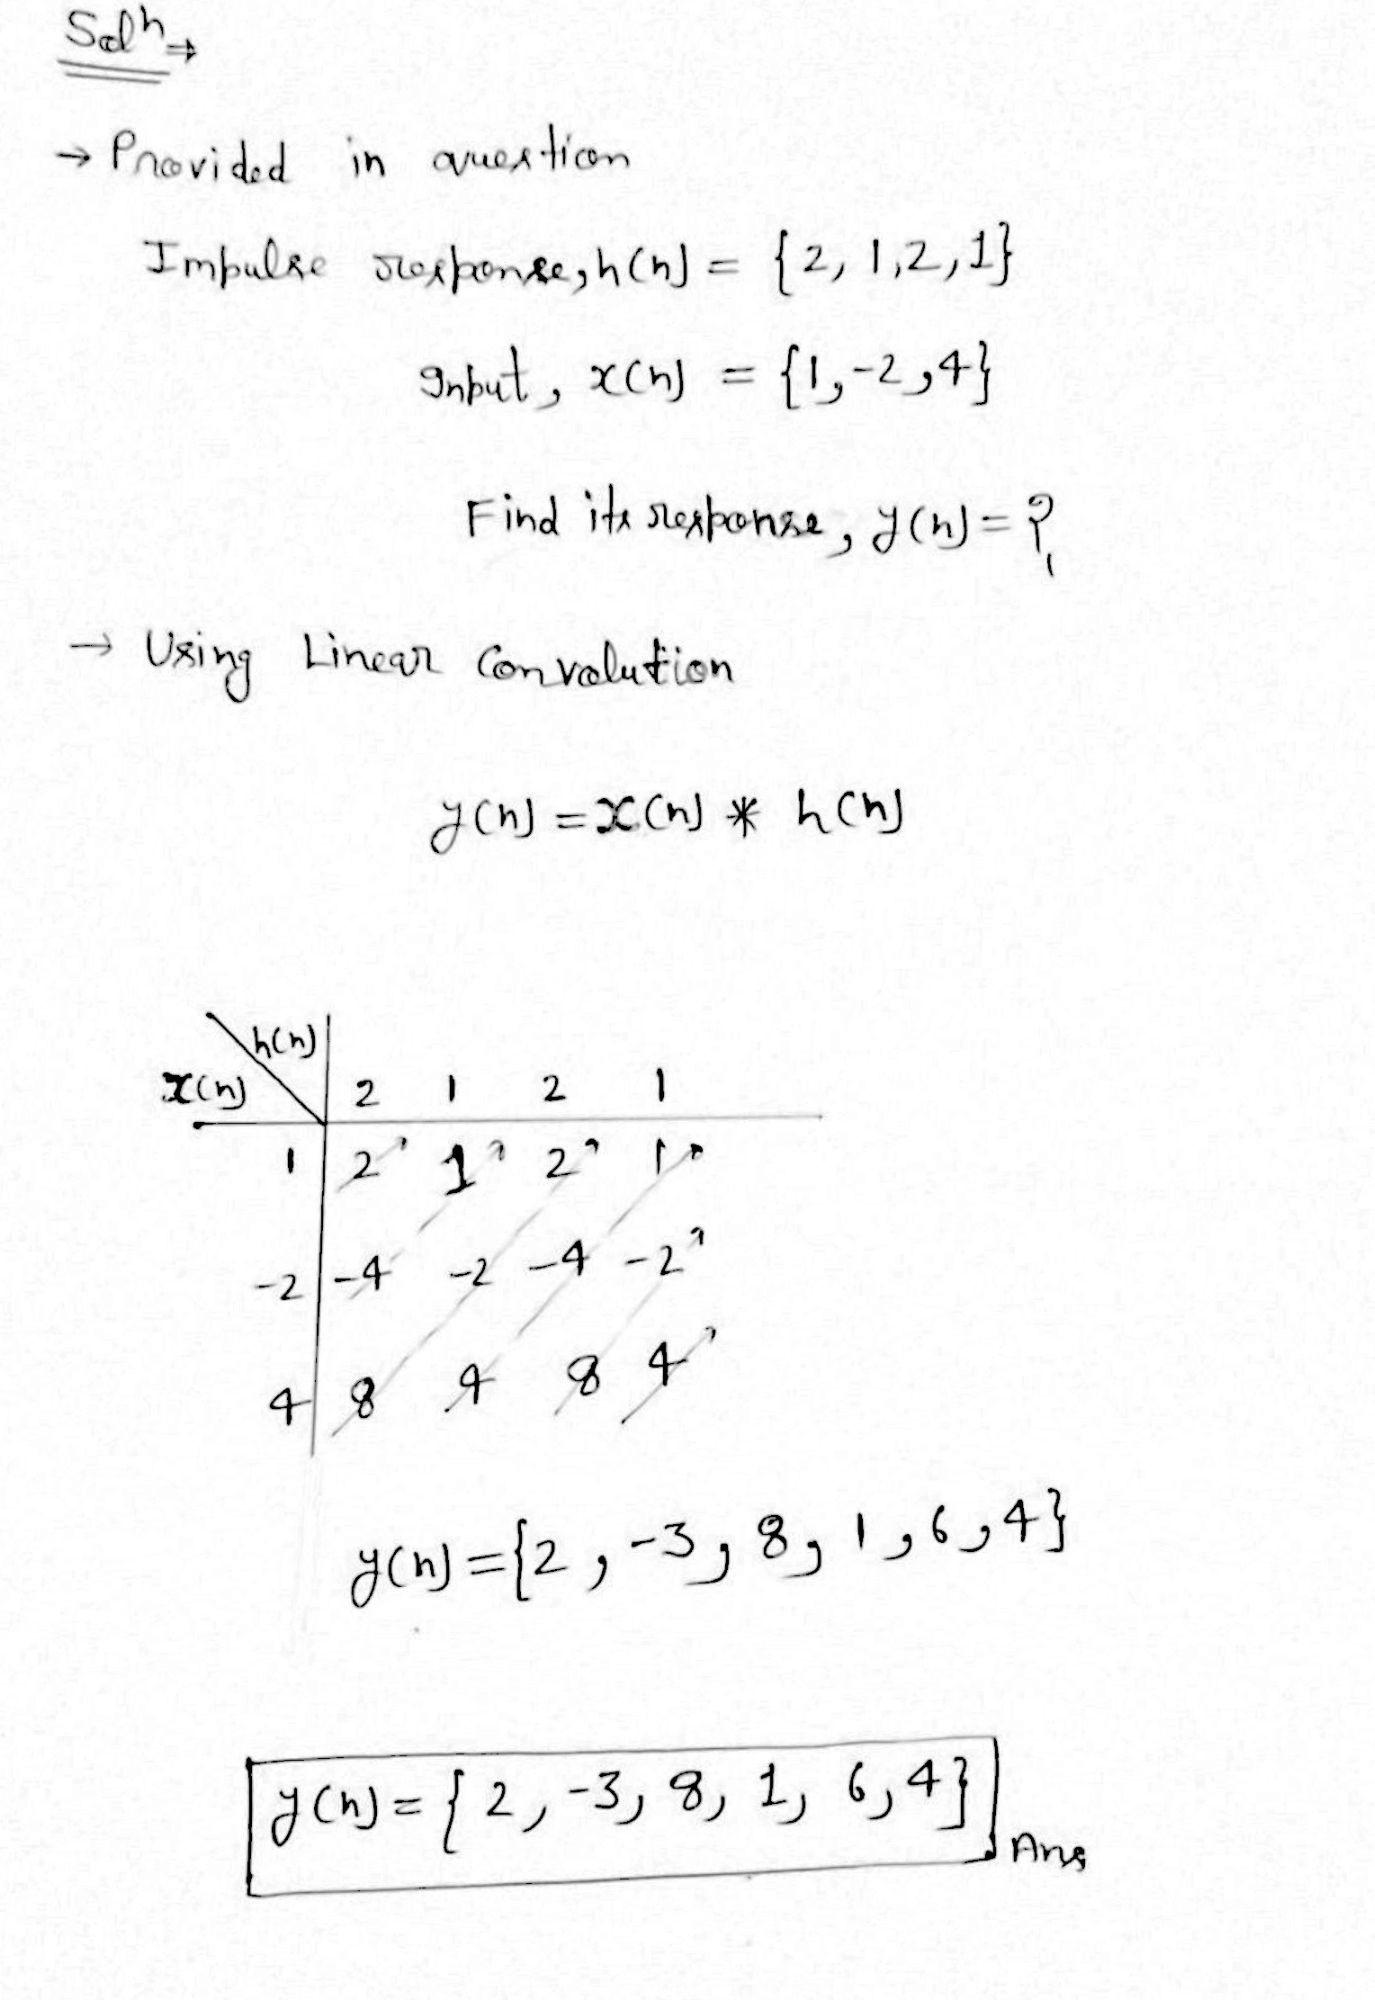 Solⁿ ⇒
→ Provided in question
Impulse response, h(n) = {2, 1, 2, 1}
Input, x(n) = {1, -2, 4}
Find its response, y(n) = ?
→ Using Linear Convolution
y(n) = x(n) * h(n)
h(n)
x(n) 2 1 2 1
1 2 1 2 1
-2 -4 -2 -4 -2
4 8 4 8 4
y(n) = {2, -3, 8, 1, 6, 4}
y(n) = {2, -3, 8, 1, 6, 4} Ans